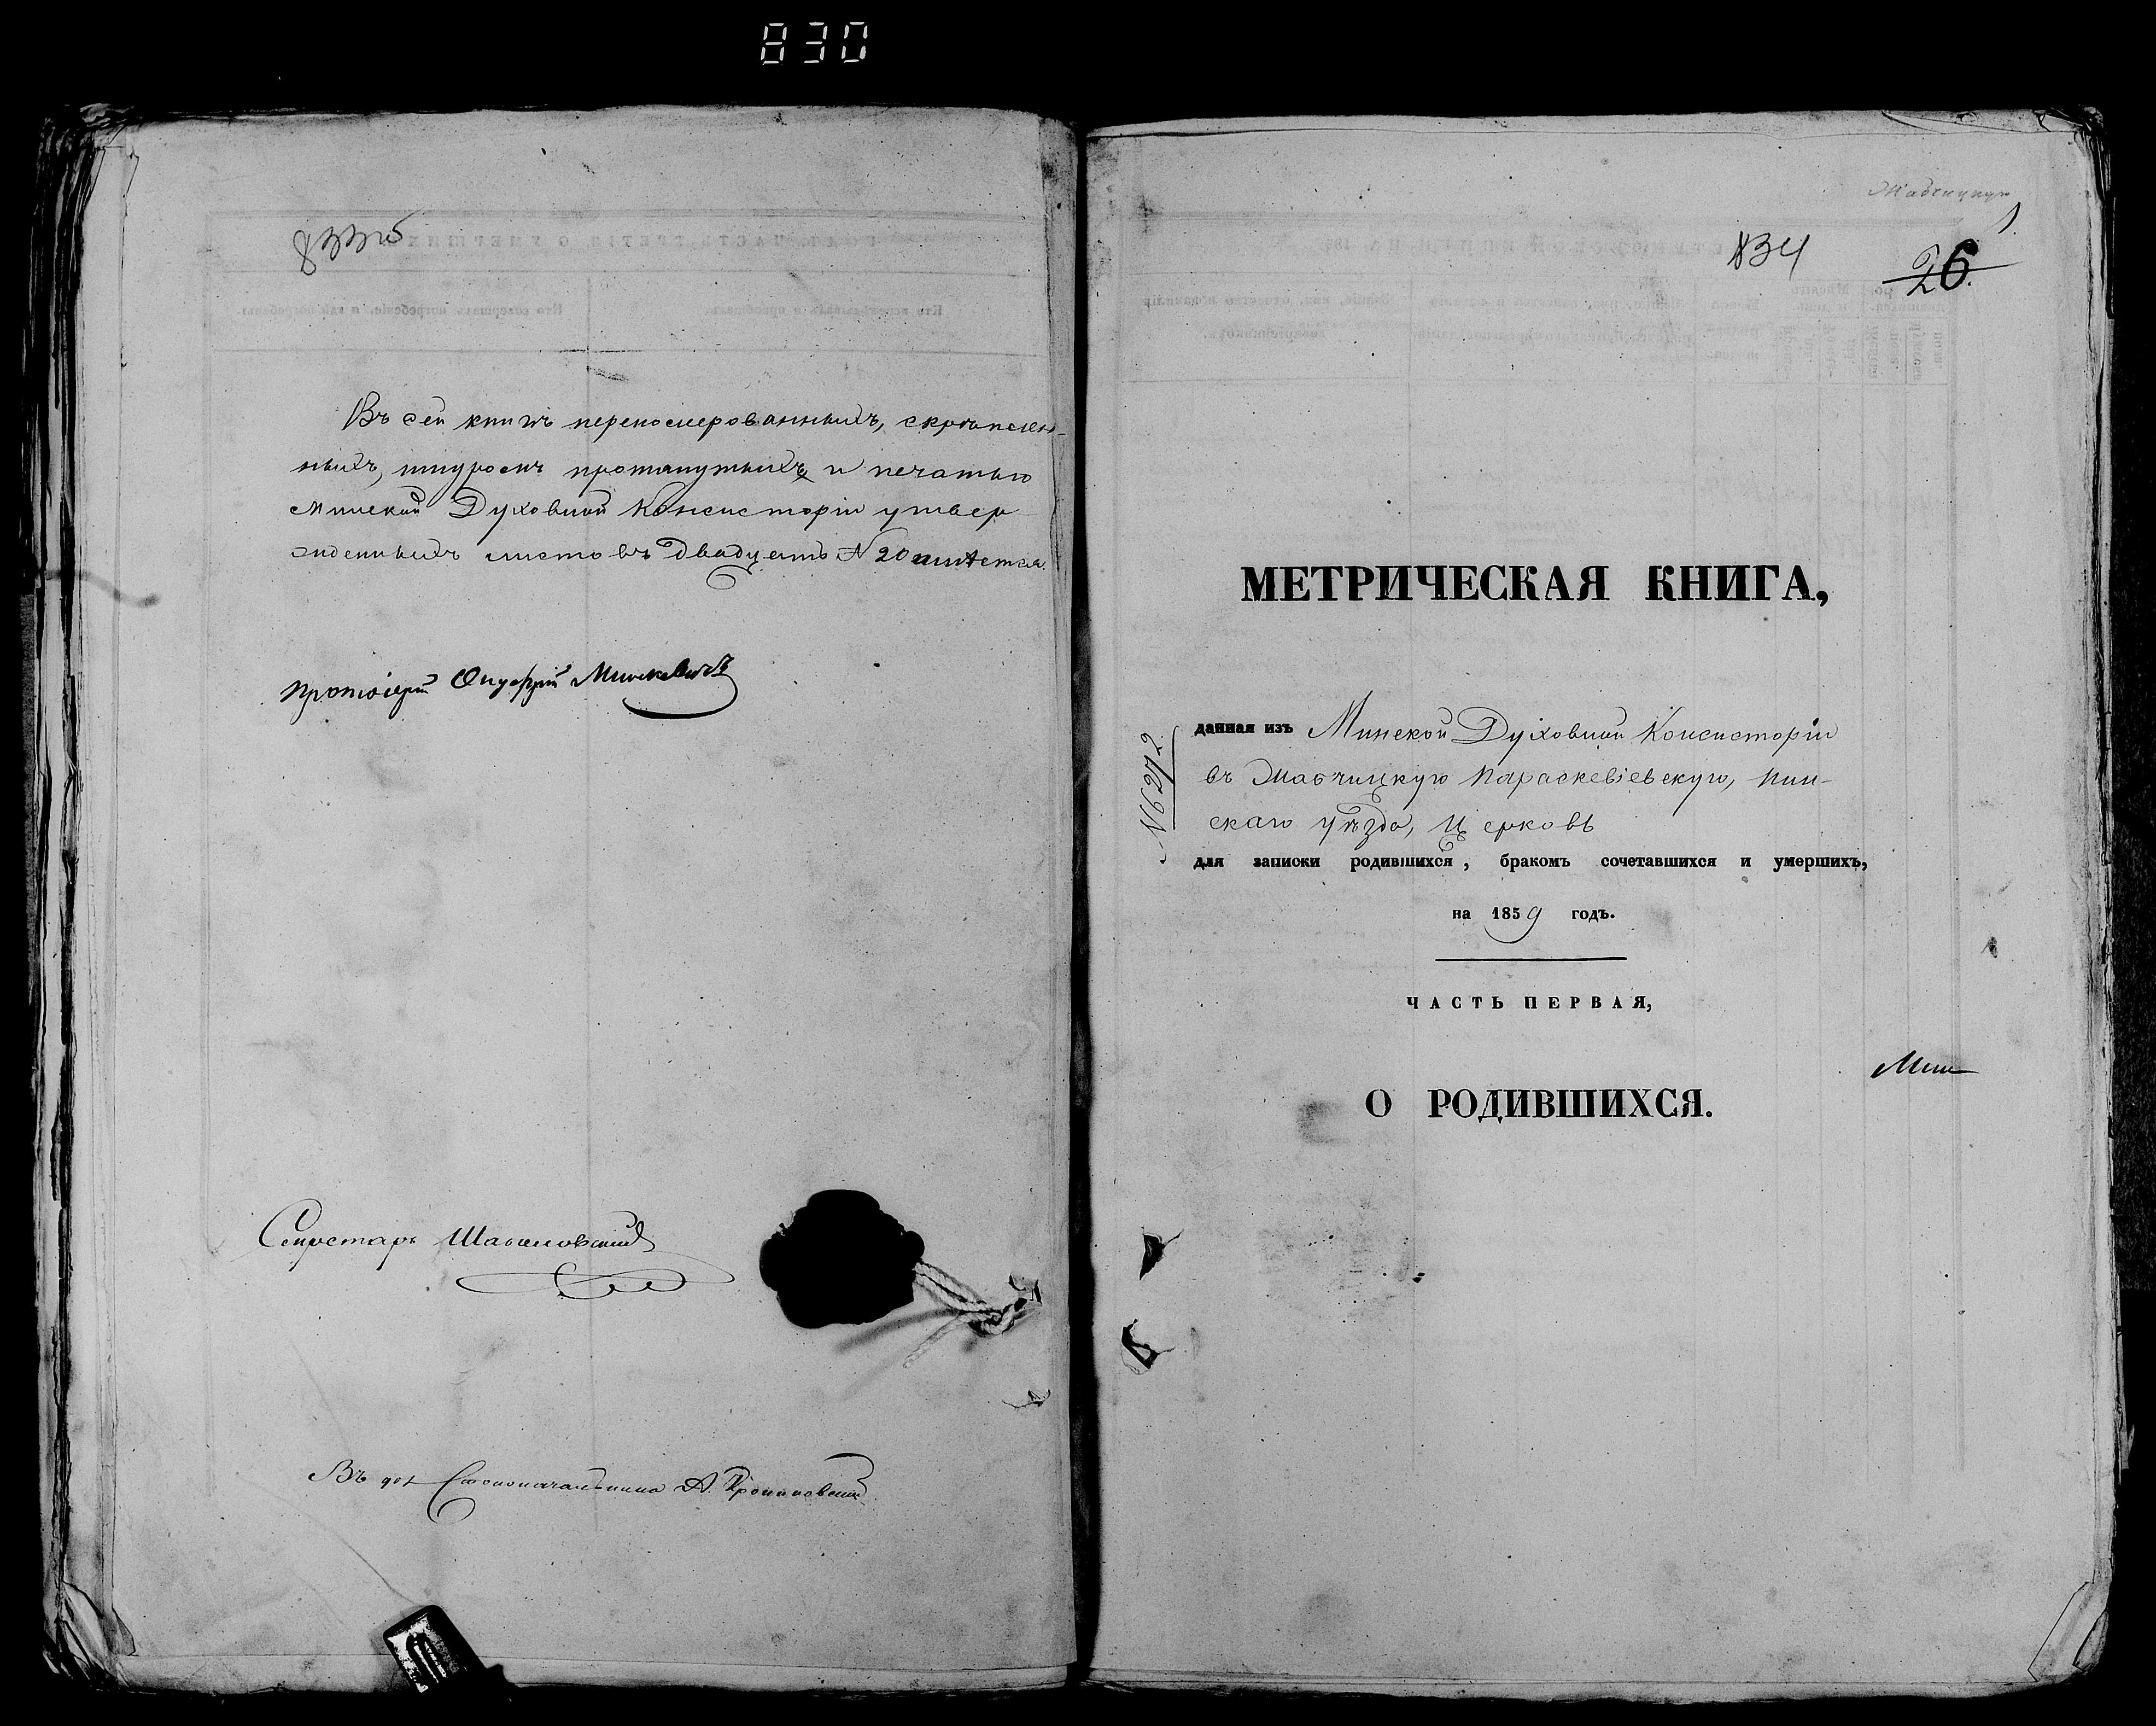 830
833об
Въ сей книгѣ перенумерованныхъ, скрѣплен-
ныхъ, шнуромъ протянутыхъ и печатью
Минской Духовной Консисторіи утвер
жденныхъ листовъ двадцать N 20 имѣется.
Протоіерей Онуфрій
Секретарь
Въ дол Столоначальника А.
834
26.
1
МЕТРИЧЕСКАЯ КНИГА,
данная изъ Минской Духовной Консисторіи
въ Жабчицкую Параскевіевскую, Пин-
скаго уѣзда, Церковь
N 6272
для записки родившихся, бракомъ сочетавшихся и умершихъ,
на 1859 годъ.
ЧАСТЬ ПЕРВАЯ,
О РОДИВШИХСЯ.